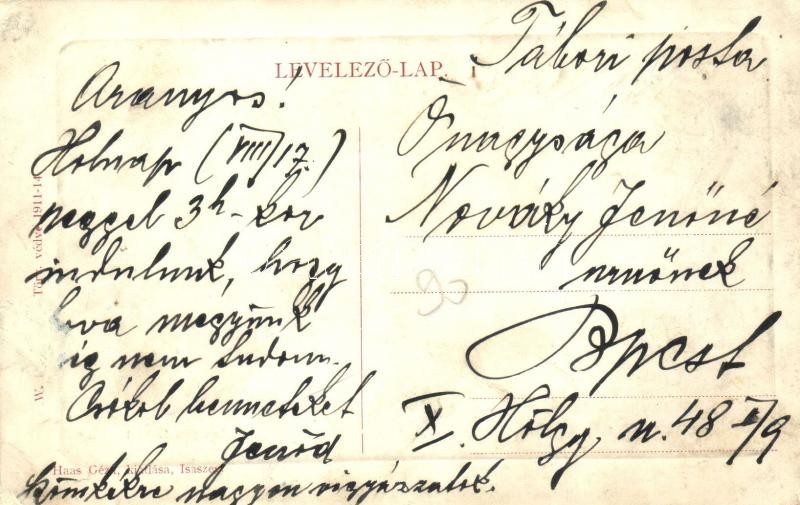 LEVELEZŐ-LAP.
Tábori posta
Aranyos!
Holnap (VIII/17.)
reggel 3h-kor
indulunk, hogy
hova megyünk
íg nem tudom.
Csókol benneteket
Jenőd
nagyon vigyázzatok.
Őnagysága
Nováky Jenőné
urnőnek
Bpest
X. Hölgy u. 48 II/9
90
W. Törv. védve 1911-14
Haas Géza, kiadása, Isaszeg